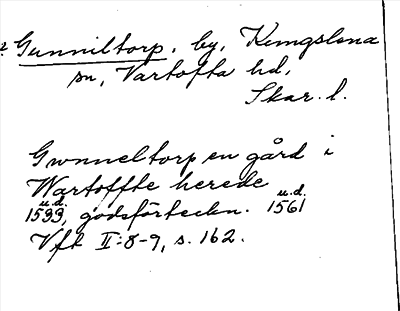 Gunniltorp, by, Kungslena
sn, Vartofta hd,
Skar. l.
Gwnneltorp en gård i
Wartoffte herede
u.d. u.d.
1533, godsförteckn. 1561
Vft II:8-9, s. 162.